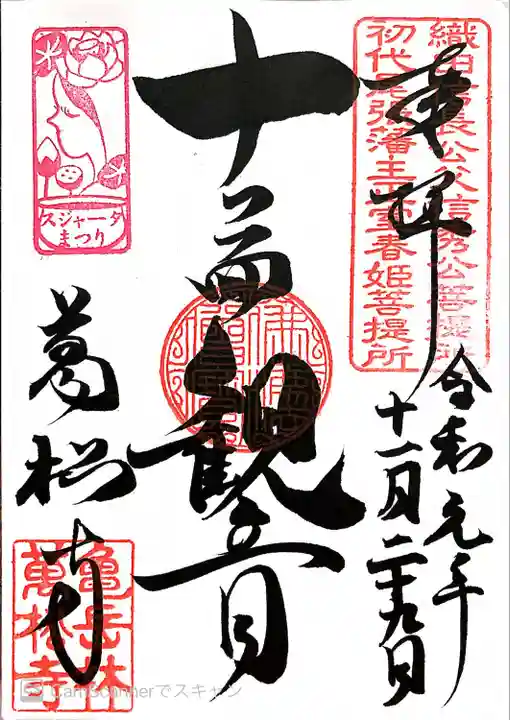 奉拝
織田信長公父信秀公菩提所
初代尾張藩主正室春姫菩提所
令和元年
十一月二十九日
十一面観音
スジャータ
まつり
萬松寺
亀岳林
萬松寺
CamScannerでスキャン